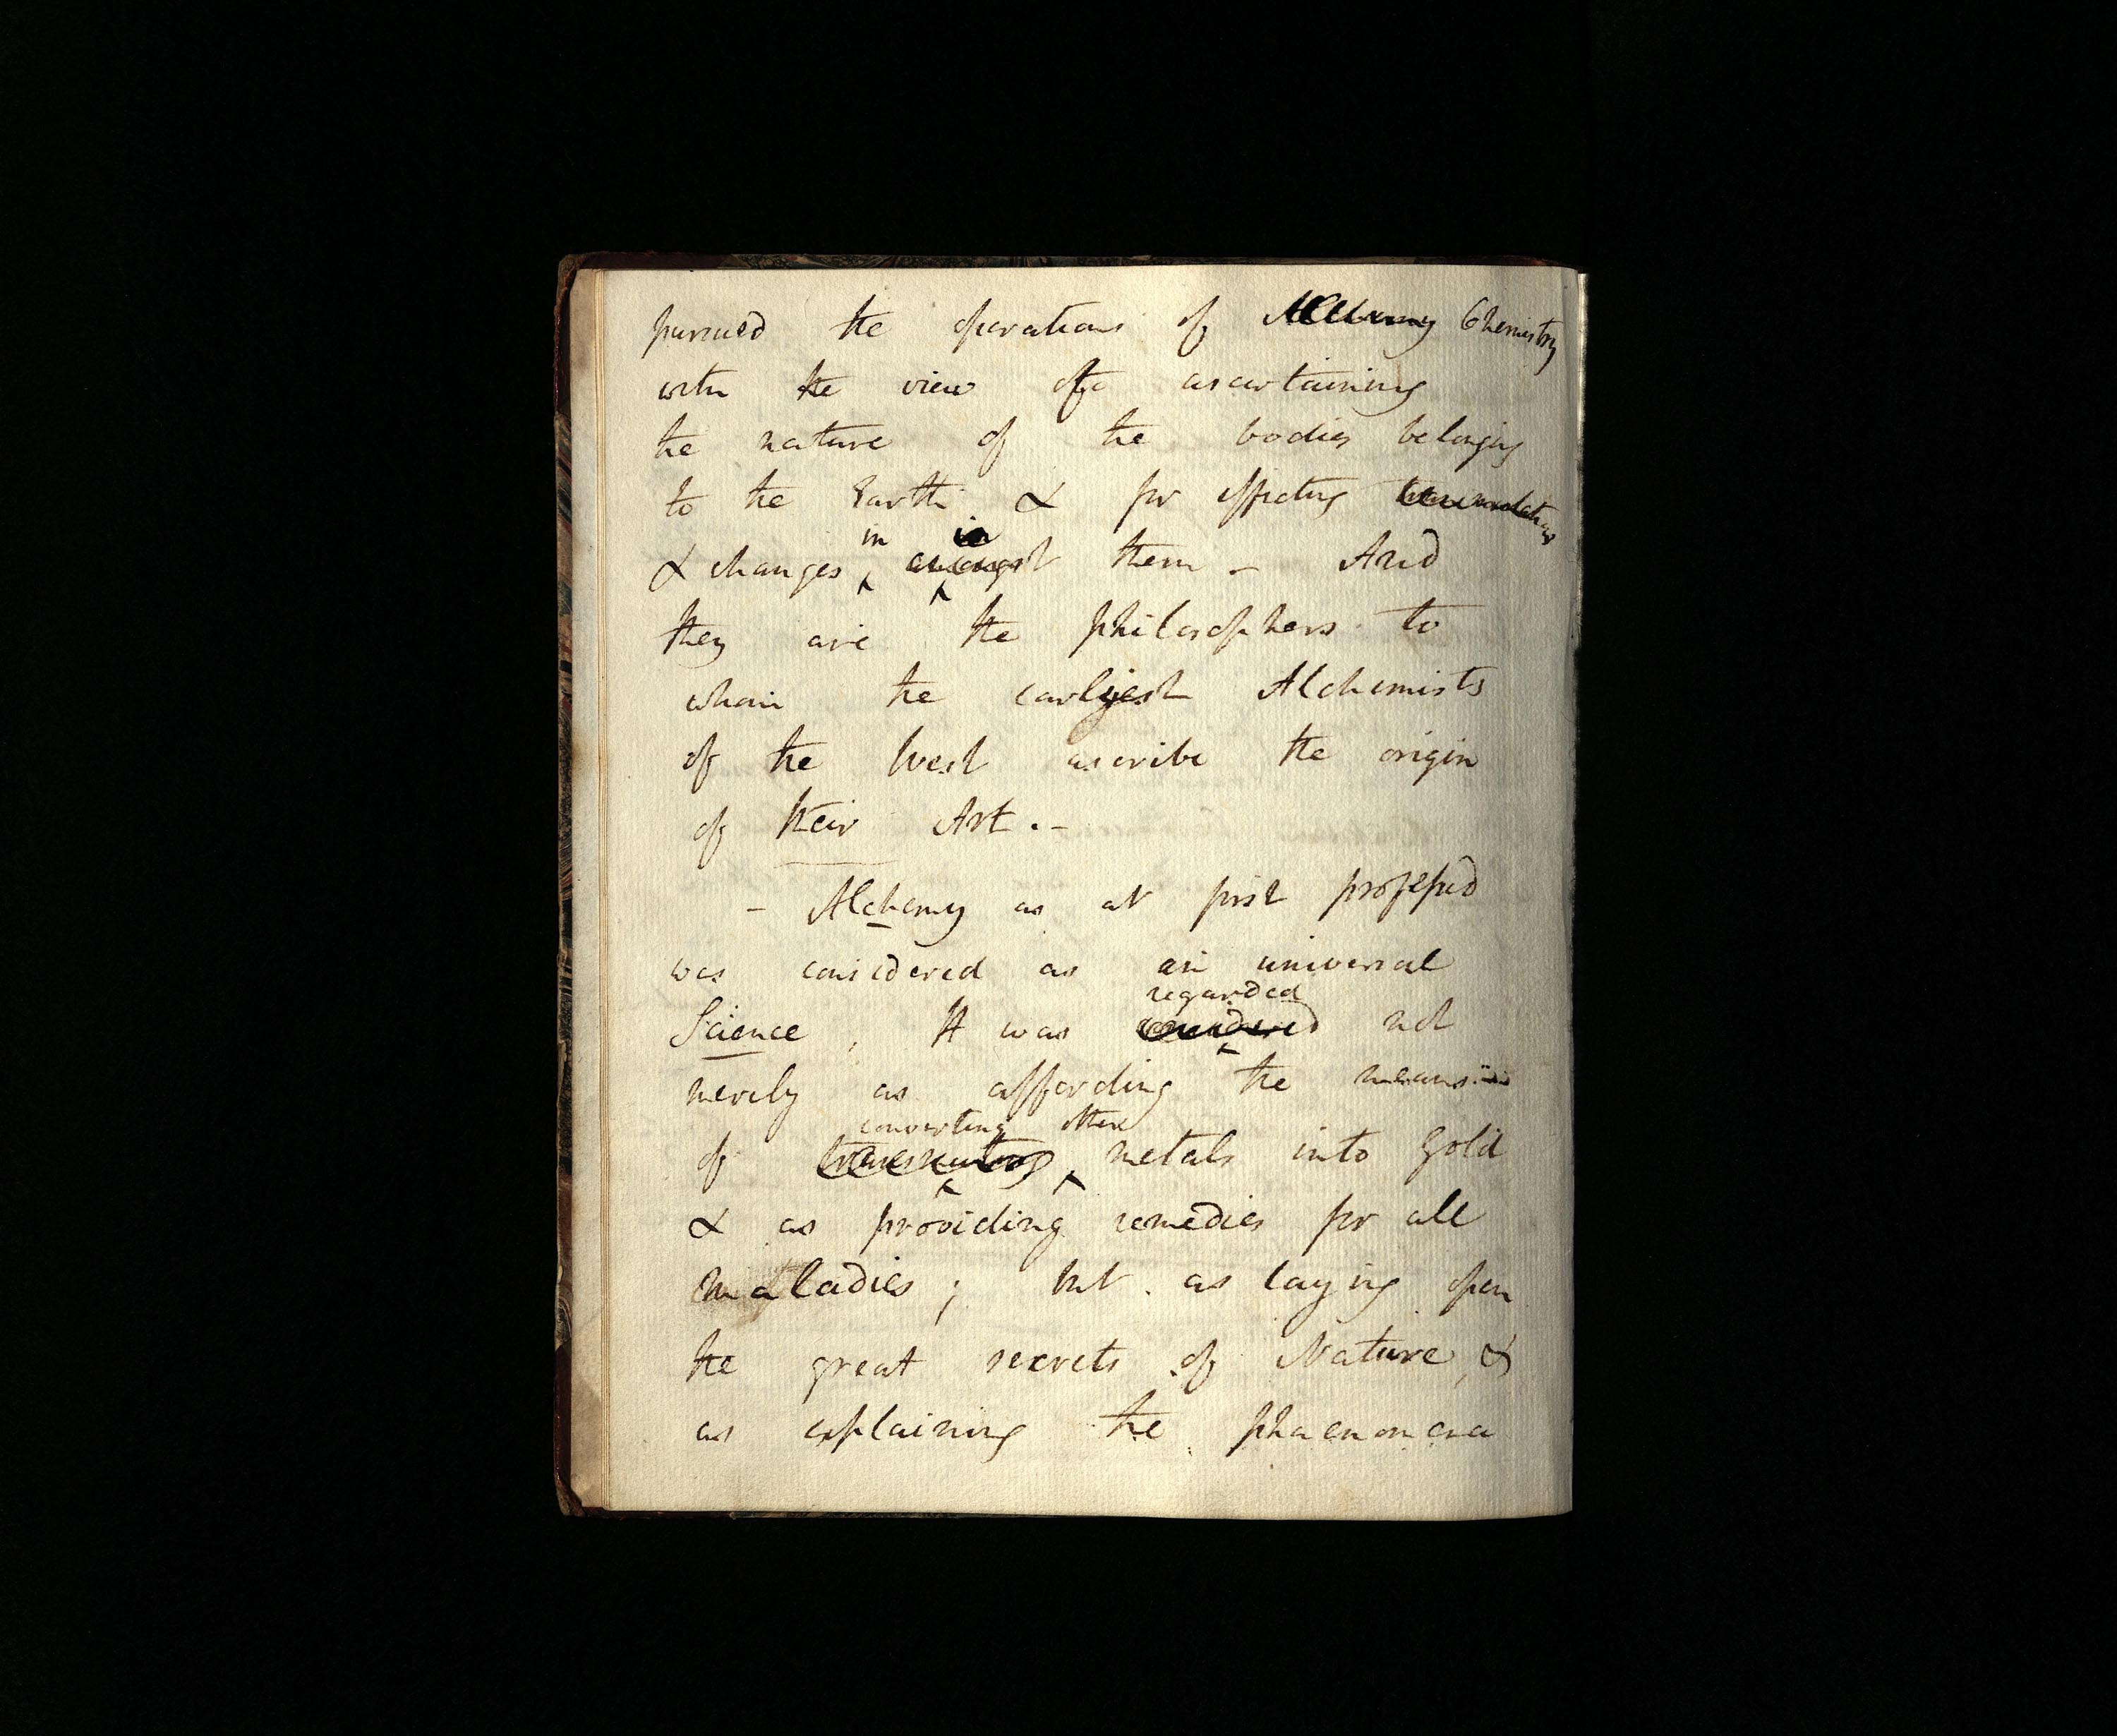 pursued the operations of Alchemy Chemistry
with the view of ascertaining
the nature of the bodies belonging
to the Earth & for effecting transmutations
in in
& changes amongst them – And
they are the philosophers to
whom the earliest Alchemists
of the West ascribe the origin
of their Art. –
– Alchemy as at first professed
was considered as an universal
regarded
Science, It was considered not
merely as affording the means
converting other
of transmuting metals into Gold
& as providing remedies for all
maladies; but as laying open
the great secrets of Nature, &
as explaining the phaenomena